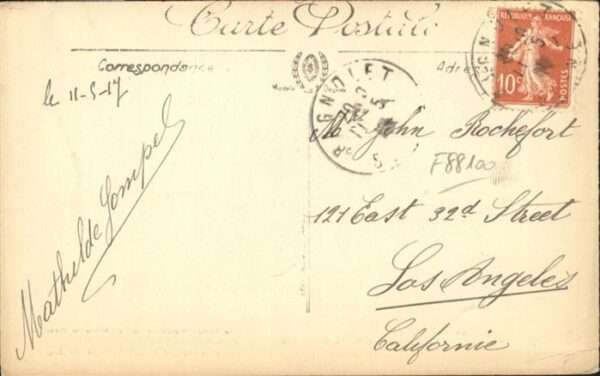 Carte Postale
Correspondance
le 11-5-17
Mathilde Gompel
RÉPUBLIQUE FRANÇAISE
10c
POSTES
Mr John Rochefort
F88100
121 East 32d Street
Los Angeles
Californie